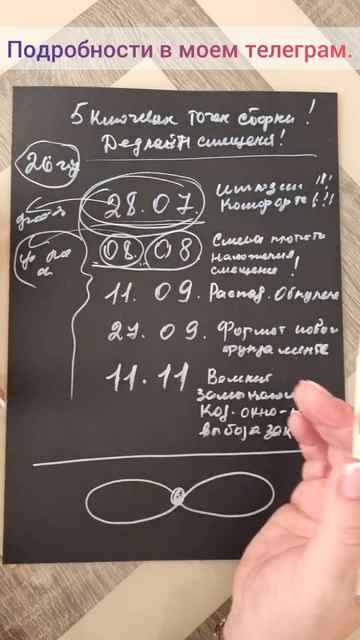 Подробности в моем телеграм.
5 Ключевых точек сборки!
Дедлайн смещения!
26 год
28.07.
Иллюзии !!!
Комфорта !!!
08. 08
Смена плотности
наложения
смещение!
11. 09. Распад. Обнуление
27. 09. Формат нового
фундамента
11. 11 Великий
замыкающий
Код. окно-
выбора